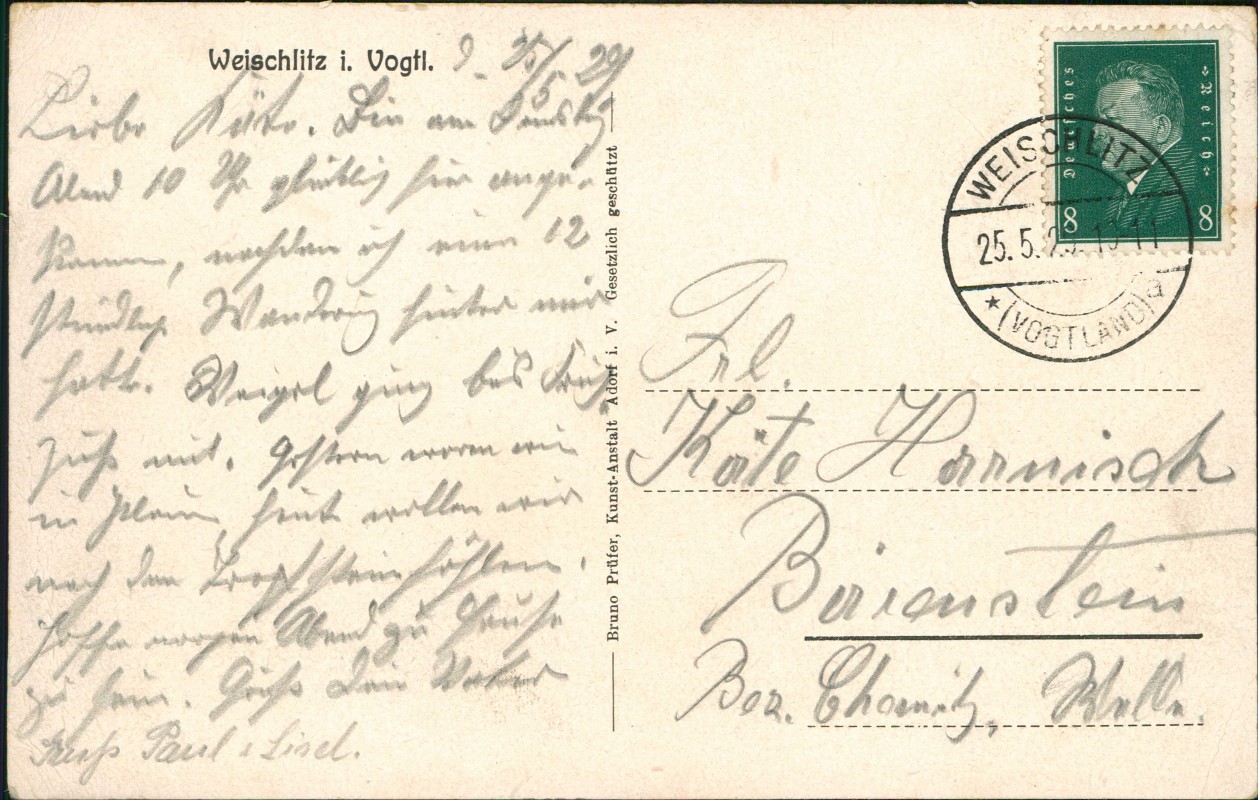 Weischlitz i. Vogtl. d. 25/5 29
Liebe Käte. Bin am Dienstag
Abend 10 Uhr glücklich hier ange-
kommen, nachdem ich eine 12
stündliche Wanderung hinter mir
hatte. Weigel ging bis
mit. Gestern waren wir
in Plauen, heute wollen wir
nach den Tropfsteinhöhlen.
Hoffe morgen Abend zu Hause
zu sein. Gruß Dein Vater
Gruß Paul u Lisel.
Bruno Prüfer, Kunst-Anstalt Adorf i. V. Gesetzlich geschützt
Deutsches Reich
8 8
WEISCHLITZ
25.5.29. 10-11
★ (VOGTLAND) a
Frl.
Käte Harnisch
Bärenstein
Bez. Chemnitz,